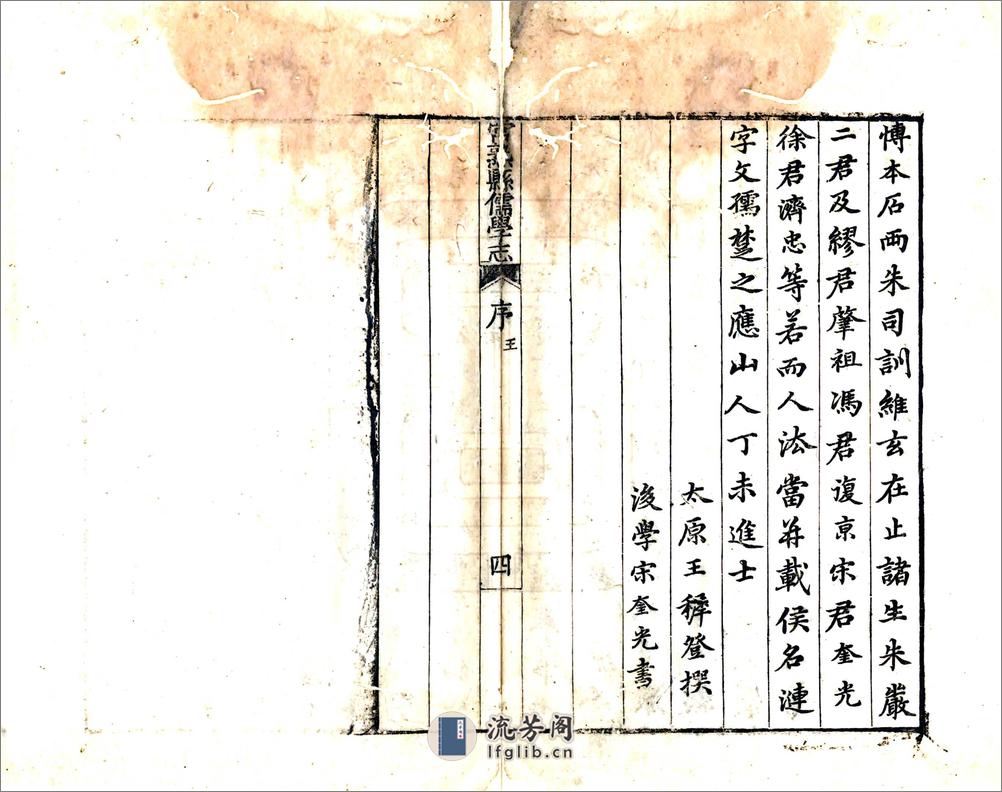 博本石兩朱司訓維玄在止諸生朱嚴
二君及繆君肇祖馮君復京宋君奎光
徐君濟忠等若而人法當并載侯名漣
字文孺楚之應山人丁未進士
太原王穉登撰
後學宋奎光書
常熟縣儒學志
序
王
四
流芳阁
lfglib.cn